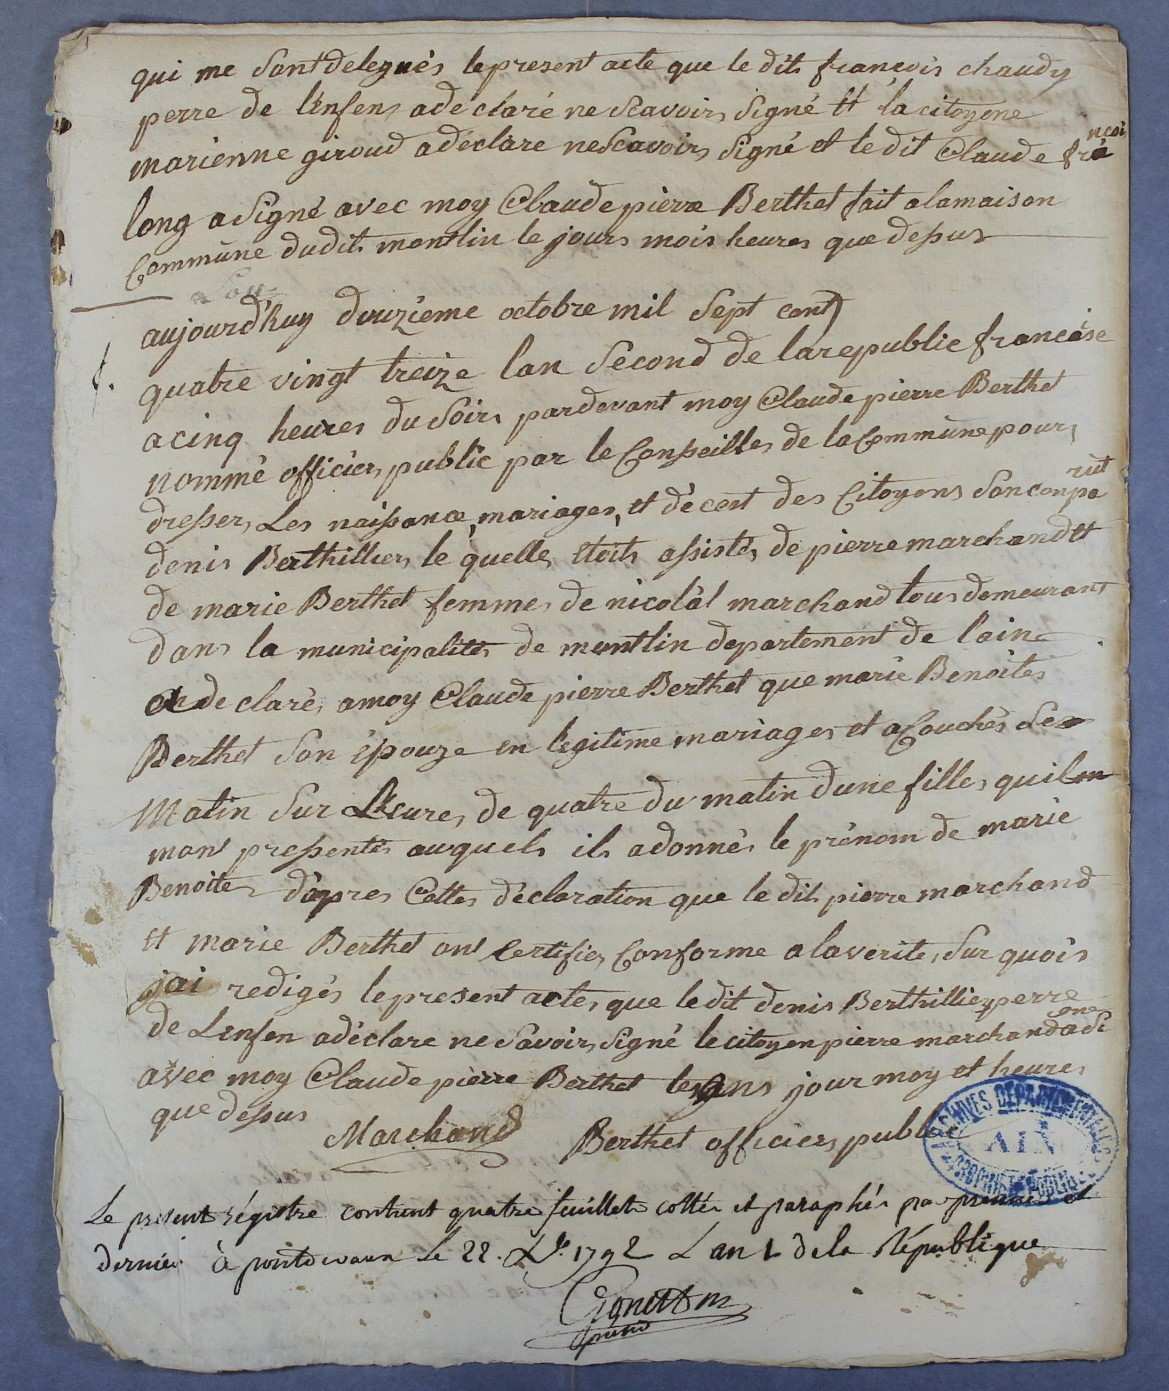 qui me sont delegués le present acte que le dit françois chaudy
perre de lenfens a declaré ne scavoir signé et la citoyene
marienne giroud a déclare ne scavoir signé et le dit Claude francoi
long a signé avec moy Claude pierre Berthet fait a la maison
Commune dudit montlin le jours mois heures que dessus
aujourd'huy douzième octobre mil sept cent
quatre vingt treize lan second de la republic francèse
a cinq heures du soir pardevant moy Claude pierre Berthet
nommé officier public par le Conseille de la Commune pour
dresser Les naissance, mariages, et décest des Citoyens son comparut
denis Berthillier le quelle etoit assistés de pierre marchand et
de marie Berthet femme de nicolál marchand tous demeurant
dans la municipalités de montlin departement de lain
declaré a moy Claude pierre Berthet que marie Benoites
Berthet son épouze en legitime mariages et acouchés Le
Matin sur Lheure de quatre du matin dune filles quil
mont pressentés auquels ils a donnés le prénom de marie
Benoites dapres Cettes déclaration que le dit pierre marchand
et marie Berthet ont certifier Conforme a la verite, sur quois
jai redigés le present actes que le dit denis Berthillier perre
de Lenfen a déclare ne savoir signé le citoyen pierre marchand a signé
avec moy Claude pierre Berthet les jour moy et heures
que dessus
Marchand Berthet officier public
ARCHIVES DÉPARTEMENTALES
AIN
PROPRIÉTÉ PUBLIQUE
Le présent régistre contient quatre feuillets cottés et paraphés par premier et
dernier à pontdevaux le 22. Xbre 1792 L'an 1 de la République